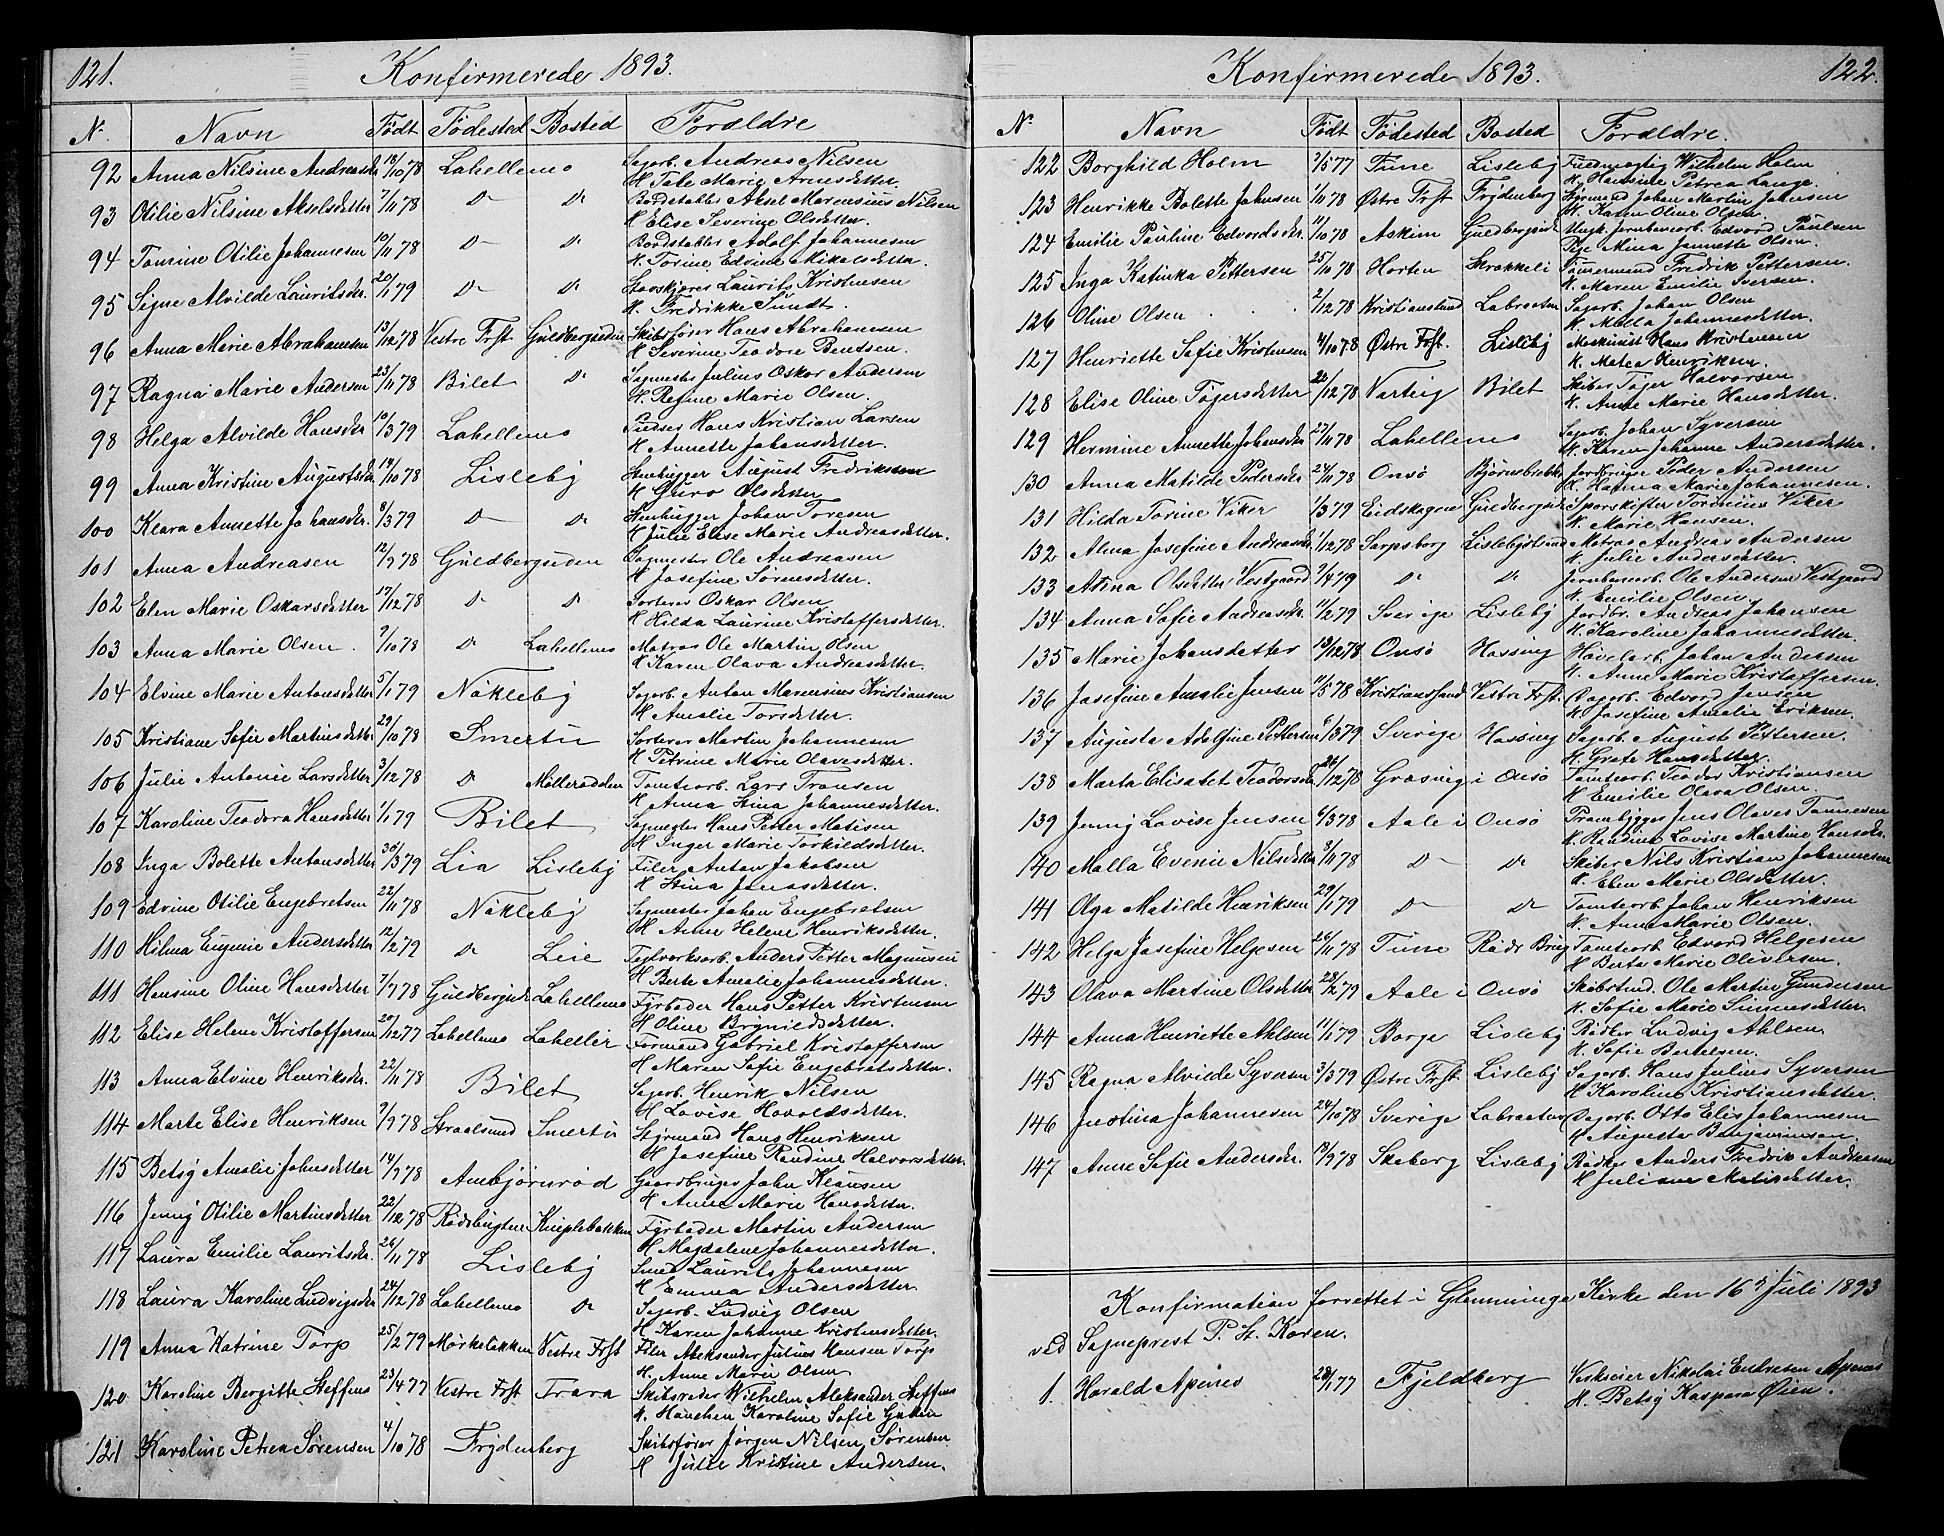 121. Konfirmerede 1893.
No Navn Født Fødested Bosted Forældre
92 Anna Nilsine Andreasdtr 18/10 78 Lahellemo Sagarb. Andreas Nilsen
H. Tabe Marie Arnesdatter.
93 Otilie Nilsine Akselsdatter 7/11 78 Do Do Bordstabler Aksel Marensius Nilsen
H Elise Severine Olsdatter.
94 Tomine Otilie Johannesen 10/11 78 Do Do Bordstabler Adolf Johannesen
H. Torine Edvine Mikalsdatter.
95 Signe Alvilde Lauritsdtr. 20/1 79 Do Do Stavskjærer Laurits Kristensen
H. Fredrikke Sundt.
96 Anna Marie Abrahamsen 13/12 78 Vestre Frst Guldbergsuden Skibsfører Hans Abrahamsen
H Severine Teodore Bendsen.
97 Ragna Marie Andersen 23/11 78 Bilet Do Sagmester Julius Oskar Andersen
H. Regine Marie Olsen.
98 Helga Alvilde Hansdtr 10/3 79 Lahellemo Hans Kristian Larsen
H Annette Johansdatter.
99 Anna Kristine Augustsdtr 14/10 78 Lisleby Stenhugger August Fredriksen
H Olava Olsdatter
100 Klara Annette Johansdtr. 8/3 79 Do Do Stenhugger Johan Toresen
H Julie Elise Marie Andreasdatter.
101 Anna Andreasen 12/9 78 Guldbergsuden Sagmester Ole Andreasen
H Josefine Sørensdatter.
102 Elen Marie Oskarsdatter 17/12 78 Do Do Sorterer Oskar Olsen
H Hilda Laurine Kristoffersdatter.
103 Anna Marie Olsen. 9/10 78 Do Lahellemo Matros Ole Martin Olsen
H Karen Olava Andreasdatter.
104 Elvine Marie Antonsdatter 5/1 79 Nökleby Sagarb. Anton Marensius Kristiansen
H Amalie Torsdatter.
105 Kristiane Sofie Martinsdatter 29/10 78 Smertu Sorterer Martin Johannesen
H Petrine Marie Olavesdatter.
106 Julie Antonie Larsdatter 3/12 78 Do Mölleroddolen Tomtearb. Lars Transen
H. Anna Stina Johannesdatter.
107 Karoline Teodora Hansdatter 1/1 79 Bilet Sagmester Hans Petter Matisen
H Inger Marie Torkildsdatter.
108 Inga Bolette Antonsdatter 30/3 79 Lia Lisleby Filer Anton Jakobsen
H Stina Jonasdatter.
109 Edvine Otilie Engebretsen 22/11 78 Nökleby Sagmester Johan Engebretsen
H Anne Helene Henriksdatter.
110 Hilma Eugenie Andersdatter 12/2 79 Do Leie Teglverksarb. Anders Petter Magnussen
H Berte Amalie Johannesdatter.
111 Hansine Oline Hansdatter 7/9 78 Guldbergsude Lahellemo Fyrbøder Hans Petter Kristensen
H Oline Brynildsdatter.
112 Elise Helene Kristoffersen 20/12 77 Lahellemo Lahellir Formand Gabriel Kristoffersen
H Maren Sofie Engebretsdatter.
113 Anna Elvine Henriksdtr. 22/11 78 Bilet Sagarb. Henrik Nilsen
H Lovise Havoldsdatter.
114 Marte Elise Henriksen 9/9 78 Straalsund Smertu Styrmand Hans Henriksen
H Josefine Randine Halvorsdatter.
115 Betsy Amalie Johnsdatter 14/9 78 Ambjörnrød Gaardbruger John Klausen
H Anne Marie Hansdatter.
116 Jenny Otilie Martinsdatter 22/12 78 Rödsbugten Kneplebakken Fyrbøder Martin Andersen
H Magdalene Johannesdatter.
117 Laura Emilie Lauritsdtr. 26/11 78 Lisleby Smed Laurits Johannesen
H Emma Andersdatter.
118 Laura Karoline Ludvigsdtr 24/12 78 Lahellemo Do Sagarb. Ludvig Olsen
H Karen Johanne Kristensdatter.
119 Anna Katrine Torp 25/2 79 Mørkebakken Vestre Frst Filer Aleksander Julius Hansen Torp
H. Anne Marie Olsen
120 Karoline Bergitte Steffens 23/4 77 Vestre Frst Trara Skibsreder Wilhelm Aleksander Steffens
H. Hanchen Karoline Sofie
121 Karoline Petrea Sørensen 4/10 78 Frydenberg Skibsfører Jørgen Nilsen Sørensen
H Julie Kristine Andersen.
Konfirmerede 1893. 122.
No Navn Født Fødested Bosted Forældre.
122 Borghild Holm 2/5 77 Tune Lisleby Fuldmægtig Wilhelm Holm
H. Hansine Petrea Lange.
123 Henrikke Bolette Johnsen 1/11 78 Østre Frst Frydenberg Styrmand Johan Martin Johnsen
H. Karen Oline Olsen.
124 Emilie Pauline Edvardsdtr. 11/10 78 Askim Guldbergsude Ungk. Jernbanearb. Edvard Paulsen
Pige Mina Jannette Olsen.
125 Inga Katinka Pettersen 25/11 78 Horten Skrakkeli Tømmermand Fredrik Pettersen.
H. Maren Emilie Iversen.
126 Oline Olsen 2/12 78 Kristiansund Labraaten Sagarb. Johan Olsen
H Malla Johannesdatter.
127 Henriette Sofie Kristensen 4/10 78 Østre Frst. Lisleby Maskinist Hans Kristensen
H. Matea Henriksen.
128 Elise Oline Tøgersdatter 22/12 78 Varteig Bilet Skiber Tøger Halvorsen
H. Anne Marie Hansdatter.
129 Hermine Annette Johansdtr 23/11 78 Lahellemo Sagarb. Johan Syversen
H. Karen Johanne Andersdatter.
130 Anna Matilde Pedersdtr 24/11 78 Onsö Bjørnebrekke Jordbruger Peder Andersen
H. Hanna Marie Johannesen.
131 Hilda Torine Viker 1/3 79 Eidskogen Guldbergsude Sporskifter Torinius Viker
H. Marie Hansen.
132 Alma Josefine Andreasdtr 1/12 78 Sarpsborg Lislebystrand Matros Andreas Andersen
H. Julie Andersdatter.
133 Anna Olsdatter Vestgaard 9/4 79 Do Do Jernbanearb. Ole Andersen Vestgaard
H. Emilie Olsen.
134 Anna Sofie Andreasdtr. 11/2 79 Sverige Lisleby Jordbr. Andreas Johansen
H. Karoline Johannesdatter.
135 Marie Johansdatter 10/12 78 Onsö Hassing Høvelarb. Johan Andersen
H. Anne Marie Kristoffersen.
136 Josefine Amalie Jensen 11/5 78 Kristianssand Vestre Frst. Dagarb. Edvard Jensen
H. Josefine Amalie Eriksen.
137 Augusta Adolfine Pettersen 6/3 79 Sverige Hassing Sagarb. August Pettersen.
H. Grete Hansdatter.
138 Marta Elisabet Teodorsdtr 26/12 78 Græsnæs i Onsö Tomtearb. Teodor Kristiansen
H Emilie Olava Olsen.
139 Jenny Lovise Jensen 6/3 78 Aale i Onsö Prambygger Jens Olaves Tannesen
H. Randine Lovise Martine Hansdtr.
140 Malla Evenie Nilsdatter 3/11 78 Do Do Skiber Nils Kristian Johannesen
H. Elen Marie Olsdatter.
141 Olga Matilde Henriksen 29/1 79 Do Do Tomtearb. Johan Henriksen
H. Anna Marie Olsen.
142 Helga Josefine Helgesen 26/11 78 Tune Røds Brug Tomtearb. Edvard Helgesen
H Berta Marie Oliversen.
143 Olava Martine Olsdatter 28/2 79 Aale i Onsö Skibstmd. Ole Martin Gundersen
H. Sofie Marie Simensdatter.
144 Anna Henriette Ahlsen 11/1 79 Borge Lisleby Bødker Ludvig Ahlsen.
H. Sofie Bertelsen.
145 Ragna Alvilde Syversen 3/3 79 Østre Frst Lisleby Sagarb. Hans Julius Syversen
H Karoline Kristiansdatter.
146 Justina Johannesen 24/10 78 Sverige Labraaten Dagarb. Otto Elis Johannesen
H Augusta Benjaminsen.
147 Anne Sofie Andersdtr. 19/9 78 Skeberg Lisleby Bødker Anders Fredrik Andreasen
H Juliane Matisdatter.
Konfirmation forrettet i Glemminge Kirke den 16de Juli 1893
ved Sogneprest P. St. Koren.
1. Harald Apenes 28/1 77 Fjeldberg Verkseier Nikolai Endresen Apenes
H. Betsy Kaspara Øien.